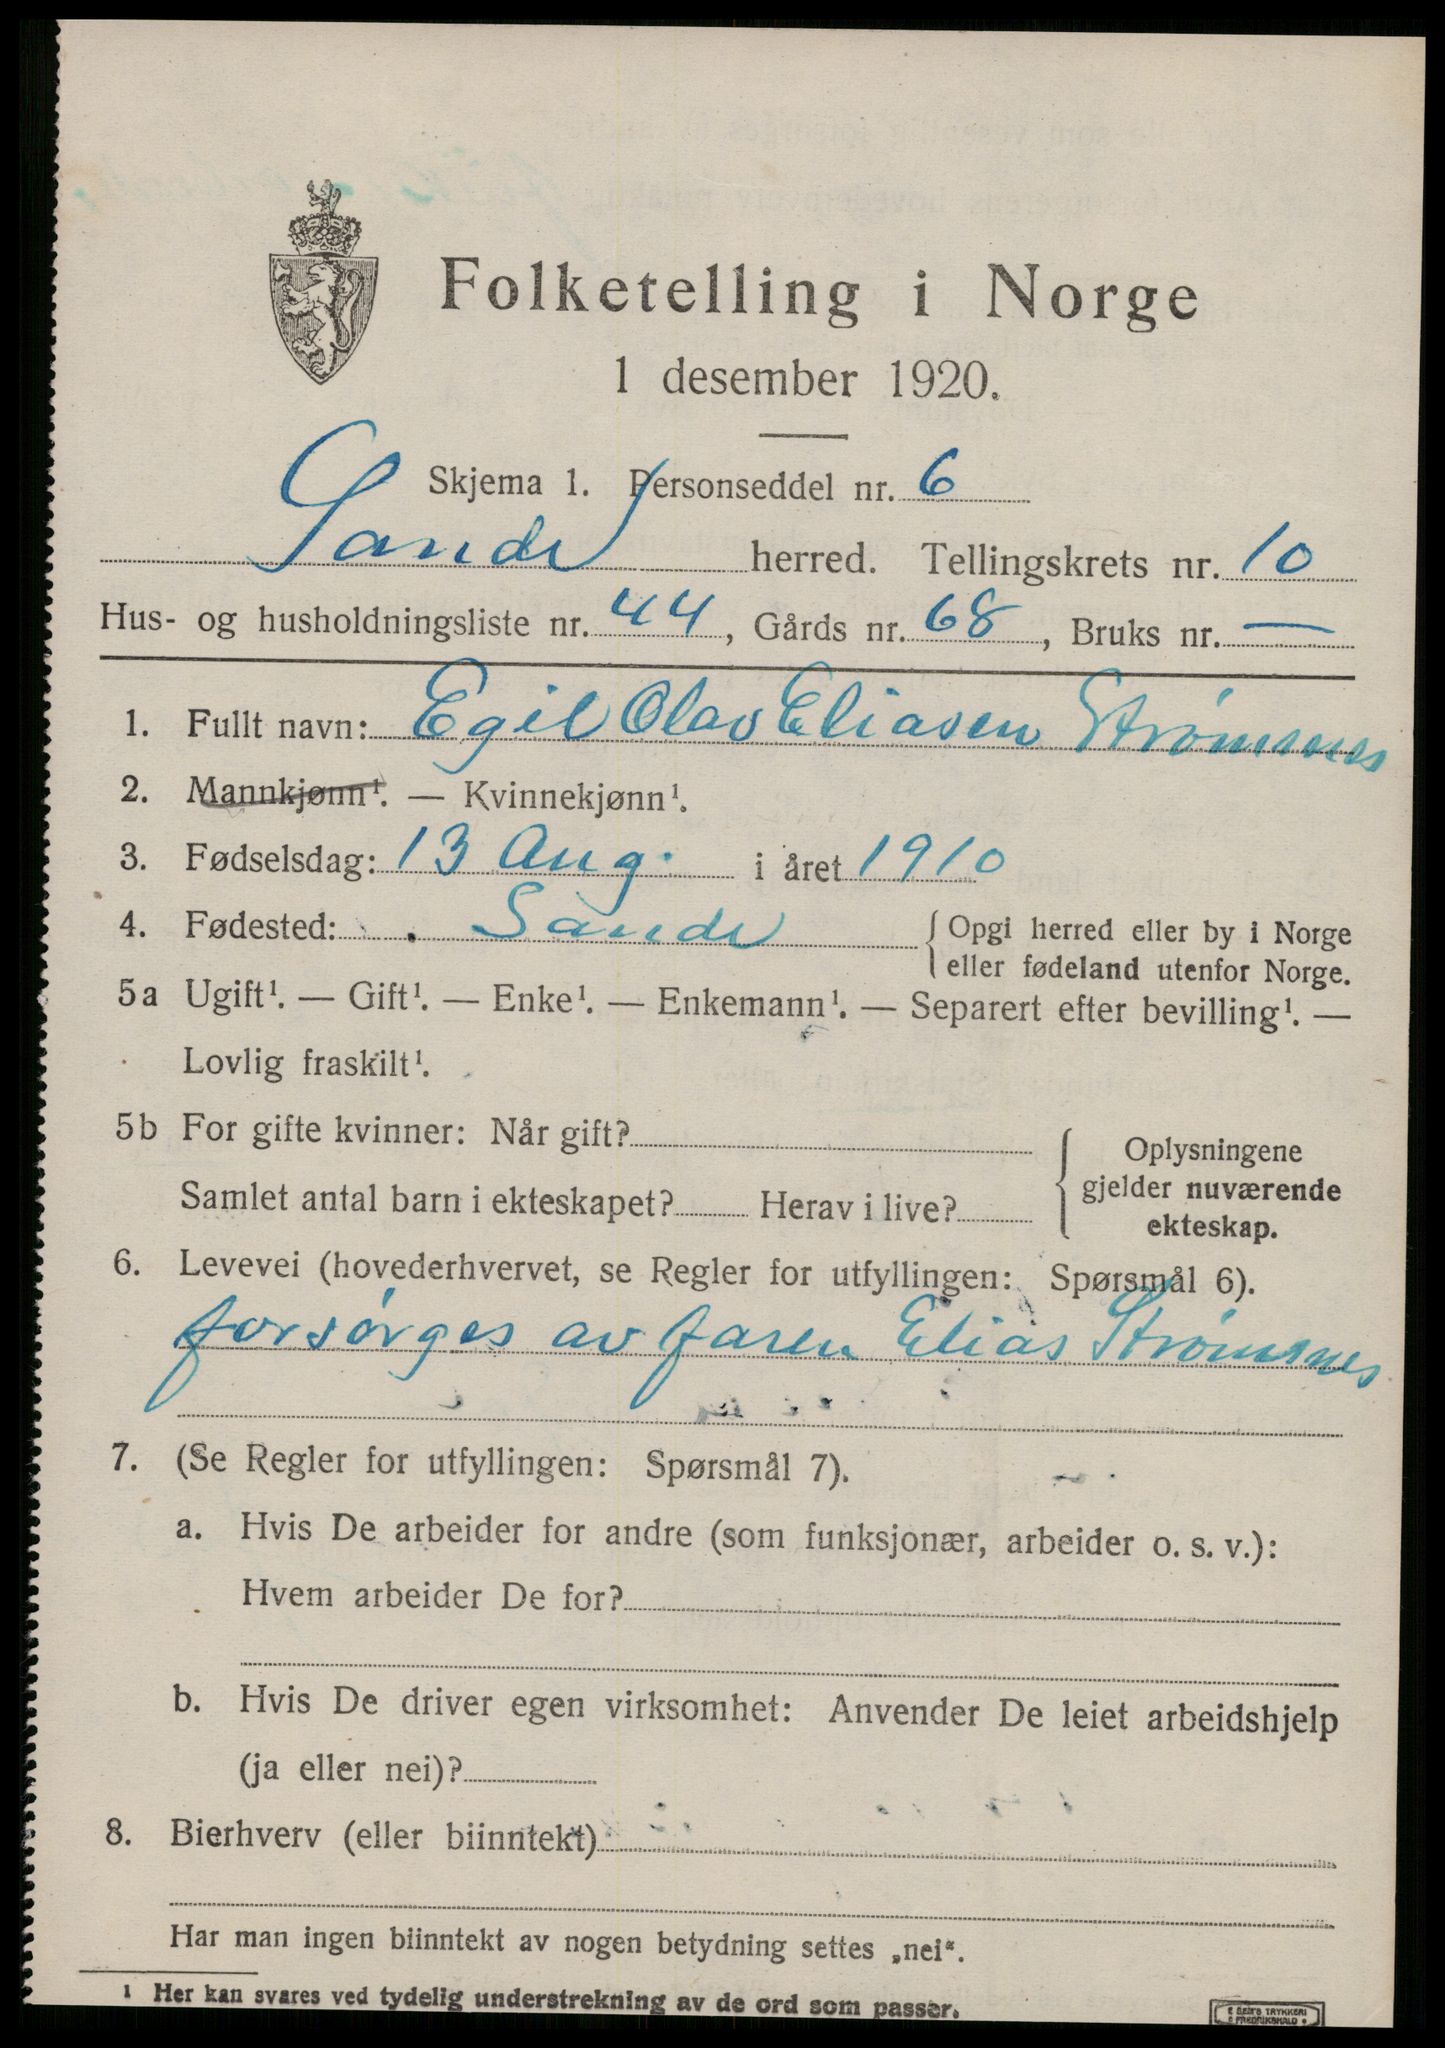 Folketelling i Norge
1 desember 1920.
Skjema 1. Personseddel nr. 6
Sande herred. Tellingskrets nr. 10
Hus- og husholdningsliste nr. 44, Gårds nr. 68, Bruks nr. —
1. Fullt navn: Egil Olav Eliasen Strømsnes
2. Mannkjønn¹. — Kvinnekjønn¹.
3. Fødselsdag: 13 Aug. i året 1910
4. Fødested: Sande { Opgi herred eller by i Norge
eller fødeland utenfor Norge.
5a Ugift¹. — Gift¹. — Enke¹. — Enkemann¹. — Separert efter bevilling¹. —
Lovlig fraskilt¹.
5b For gifte kvinner: Når gift?
Samlet antal barn i ekteskapet? Herav i live?
Oplysningene
gjelder nuværende
ekteskap.
6. Levevei (hovederhvervet, se Regler for utfyllingen: Spørsmål 6).
forsørges av faren Elias Strømsnes
7. (Se Regler for utfyllingen: Spørsmål 7).
a. Hvis De arbeider for andre (som funksjonær, arbeider o. s. v.):
Hvem arbeider De for?
b. Hvis De driver egen virksomhet: Anvender De leiet arbeidshjelp
(ja eller nei)?
8. Bierhverv (eller biinntekt)
Har man ingen biinntekt av nogen betydning settes „nei“.
1 Her kan svares ved tydelig understrekning av de ord som passer.
TRYKKERI
FREDRIKSHALD